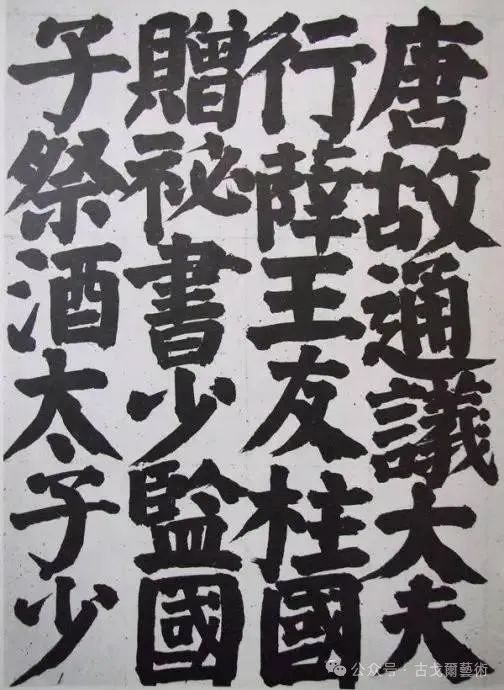 唐故通議大夫
行薛王友柱國
贈祕書少監國
子祭酒太子少
公众号·古戈爾藝術